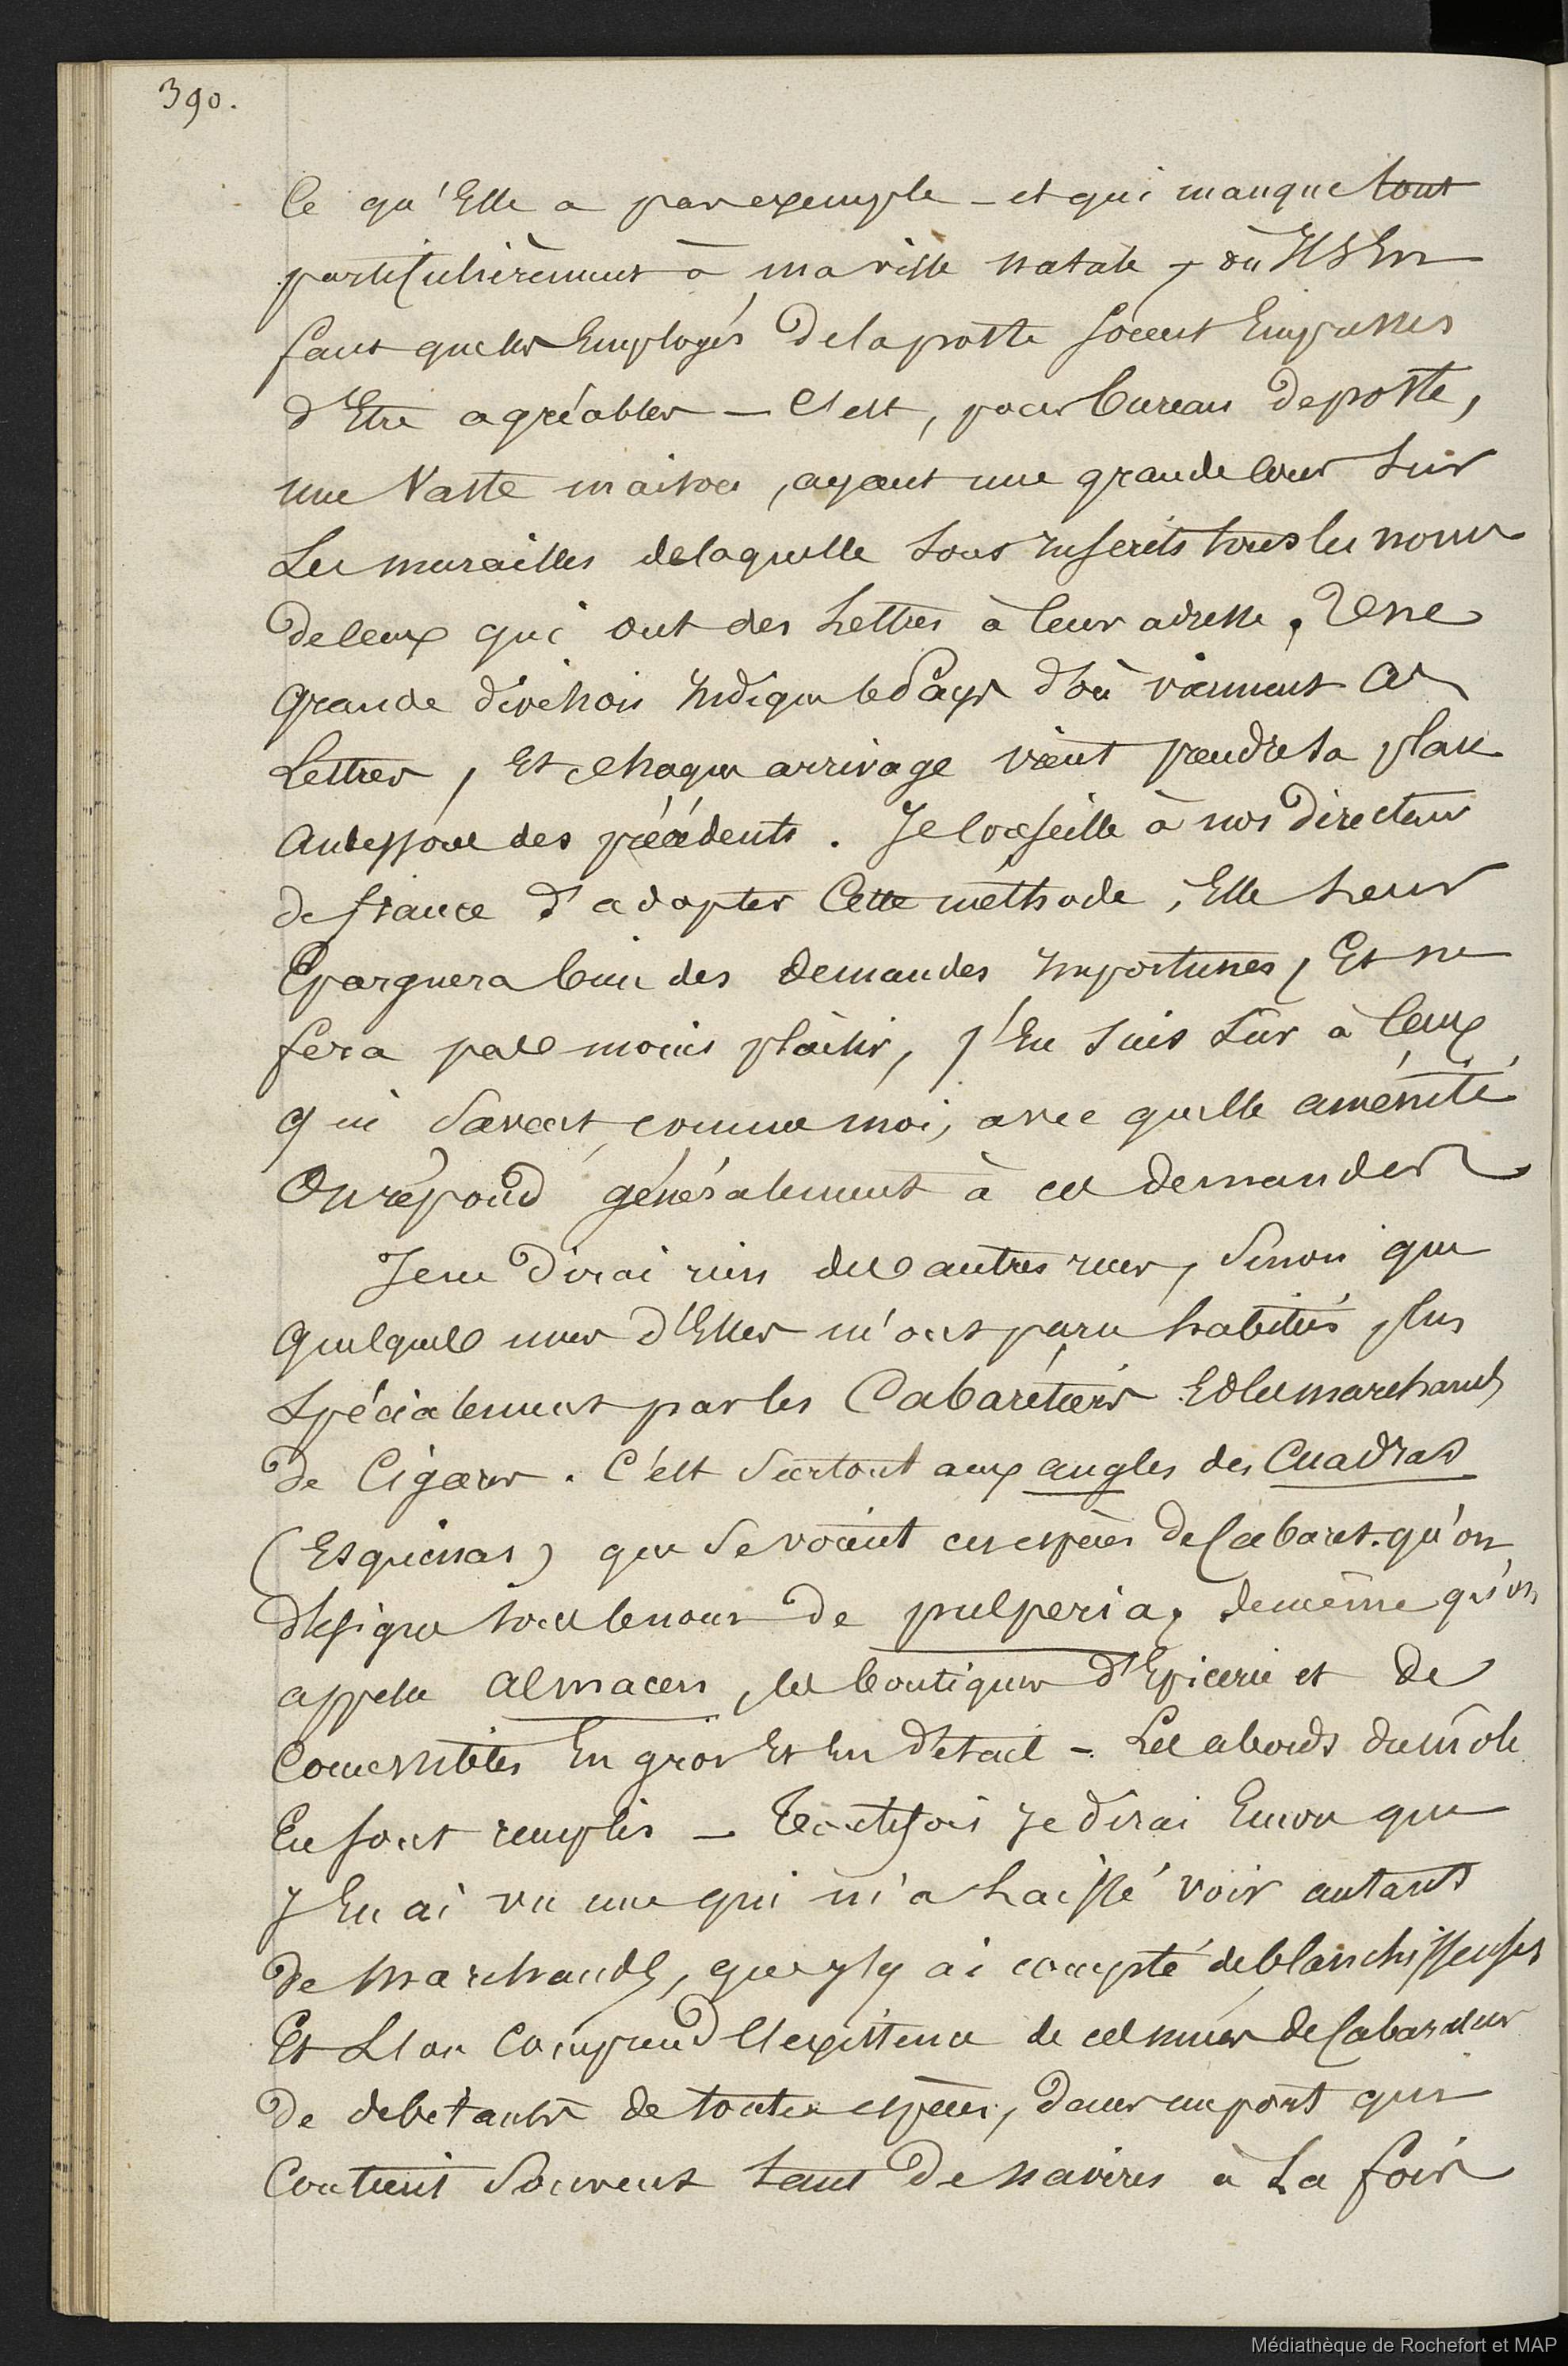 390.
Ce qu'Elle a par exemple - et qui manque tout
particulièrement à ma ville natale, où Il S'En
faut que les Employés de la poste soient Empressés
d'Etre agréables - C'est, pour bureau de poste,
une Vaste maison, ayant une grande cour sur
Les murailles de laquelle sont Inscrits tous les noms
de Ceux qui ont des Lettres à leur adresse. Une
grande division Indique le Pays d'où viennent Ces
Lettres, Et chaque arrivage vient prendre sa place
au dessous des précédents. Je Conseille à nos Directeurs
de france d'adopter Cette méthode, Elle Leur
Epargnera bien des demandes Importunes, Et ne
fera pas moins plaisir, J'En suis sûr à Ceux
qui Savent, comme moi, avec quelle aménité
On répond généralement à ces demandes
Je ne Dirai rien des autres rues, Sinon que
quelques unes d'Elles m'ont paru habitées plus
Spécialement par les Cabaretiers Et les marchands
de Cigares. C'est Surtout aux angles des Cuadras
(Esquinas) que Se voient ces espèces de Cabarets qu'on
désigne sous le nom de pulperia, de même qu'on
appelle almacen, les boutiques d'Epicerie et de
Comestibles En gros Et En Détail - Les abords du môle
En sont remplis - Toutefois Je dirai Encore que
J'En ai vu une qui m'a Laissé voir autant
de Marchands, que J'y ai compté de blanchisseuses
Et L'on Comprend l'existence de ces nuées de Cabaretiers
de débitants de toutes espèces, dans un port qui
Contient Souvent tant De navires à La fois
Médiathèque de Rochefort et MAP